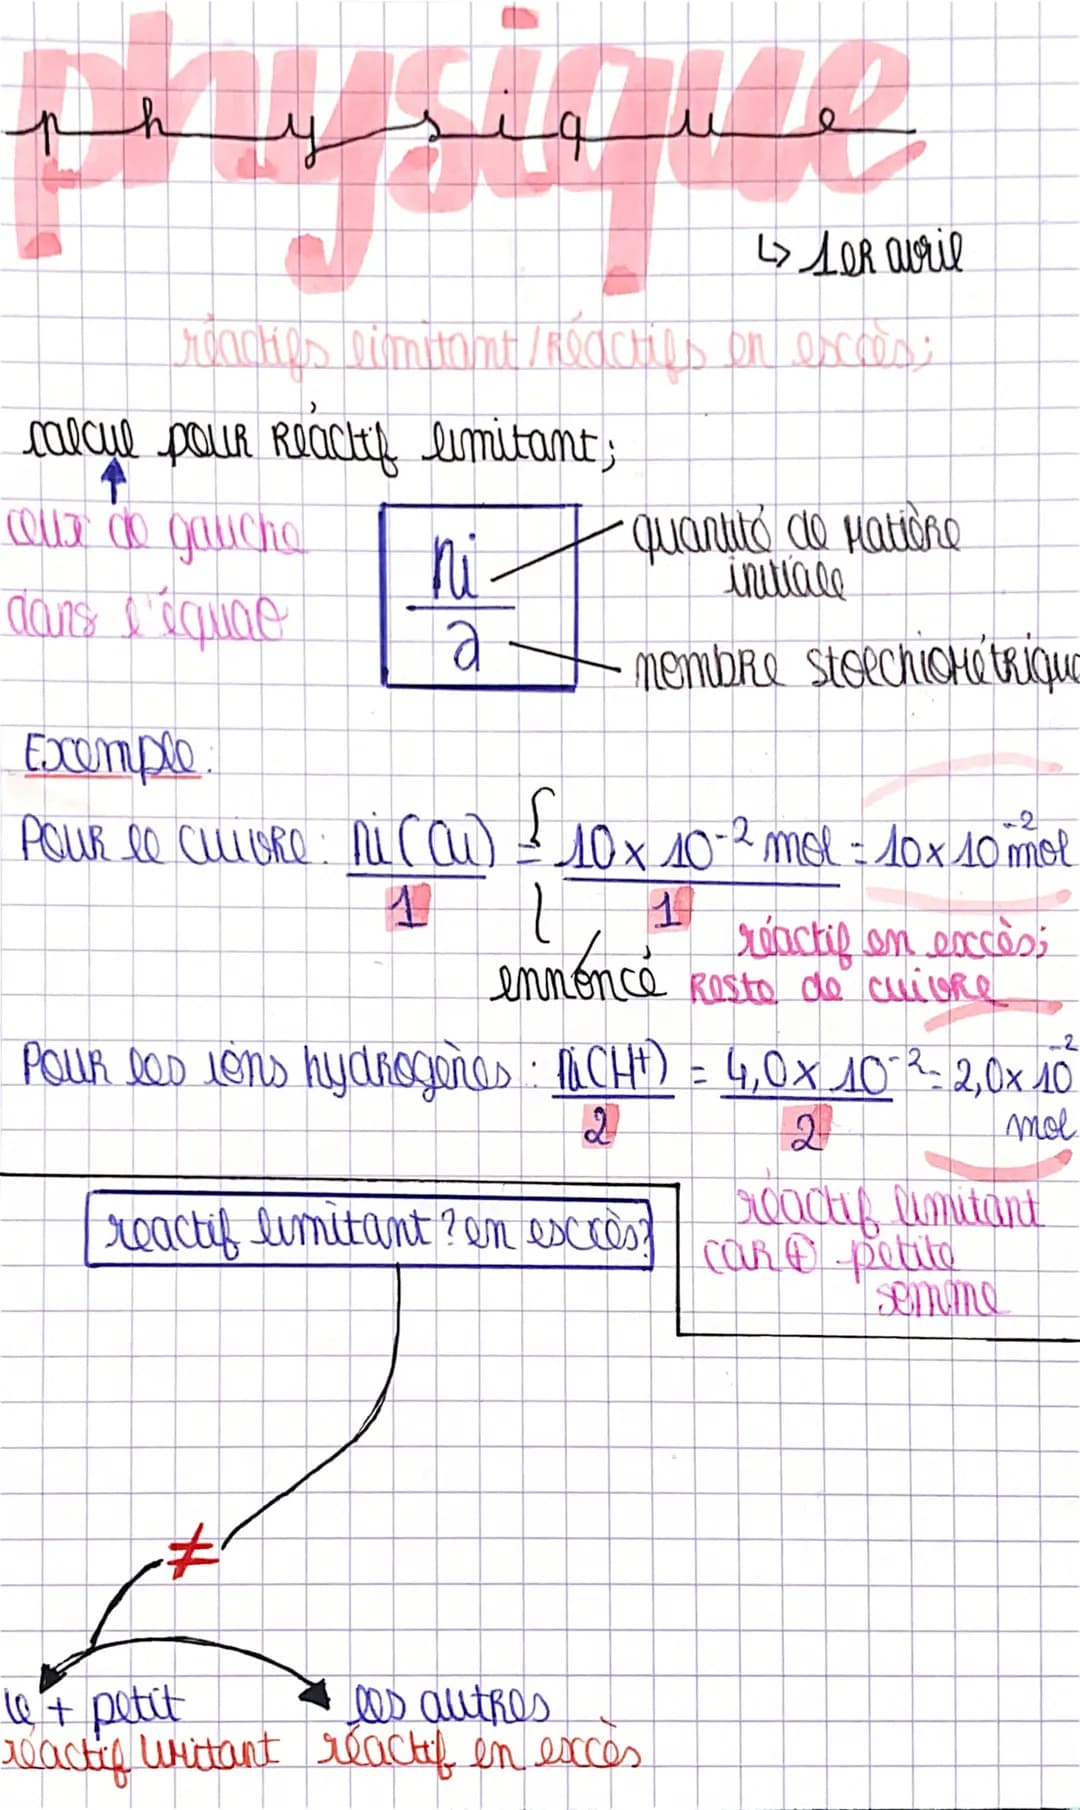 physique
physique
↳ 1ER avril
réactifs limitant / Réactifs en excès;
calcul pour Réactif limitant;
ceux de gauche
dans l'équae
ni
a
quantité de matière
initiale
nombre stoechiométrique
Exemple:
Pour le cuivre : ni(Cu) = 10 x 10-² mol = 10 x 10-² mol
1
1
réactif en excès;
ennoncé
Reste de cuivre
Pour les ions hydrogènes : ni(H+) = 4,0 x 10-² = 2,0 x 10-²
2
2
mol
reactif limitant ? en escès?
réactif limitant
car ⊕ petite
somme
≠
le + petit
les autres
réactif limittant
réactif en excès